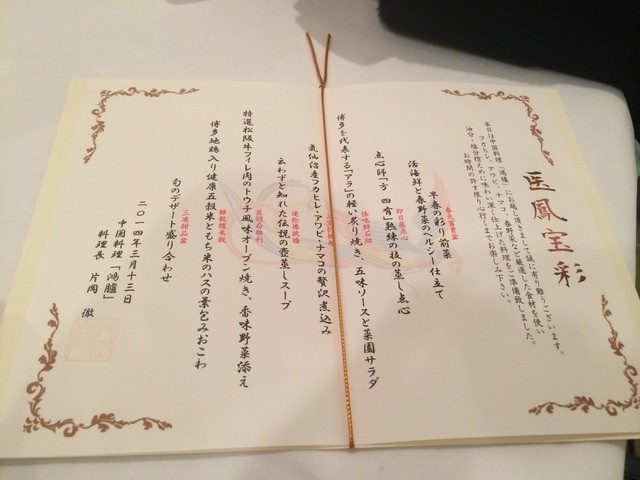 医鳳宝彩
本日は中国料理「鴻臚」にお越し頂きまして誠に有り難うございます。
フカヒレ、アワビ、ナマコ、春野菜など厳選した食材を使い
油分・塩分控えめに味わい深く仕上げた料理をご準備致しました。
お時間の許す限りごゆっくりお楽しみ下さい。
早春の彩り前菜
活海鮮と春野菜のヘルシー仕立て
点心師「方 四有」熟練の技の蒸し点心
博多を代表する「アラ」の軽い炙り焼き、五味ソースと菜園サラダ
気仙沼産フカヒレ・アワビ・ナマコの贅沢煮込み
云わずと知れた伝説の壺蒸しスープ
特選松阪牛フィレ肉のトウチ風味オーブン焼き、香味野菜添え
博多地鶏入り健康五穀米ともち米のハスの葉包みおこわ
旬のデザート盛り合わせ
二〇一四年三月十三日
中国料理「鴻臚」
料理長 片岡 徹